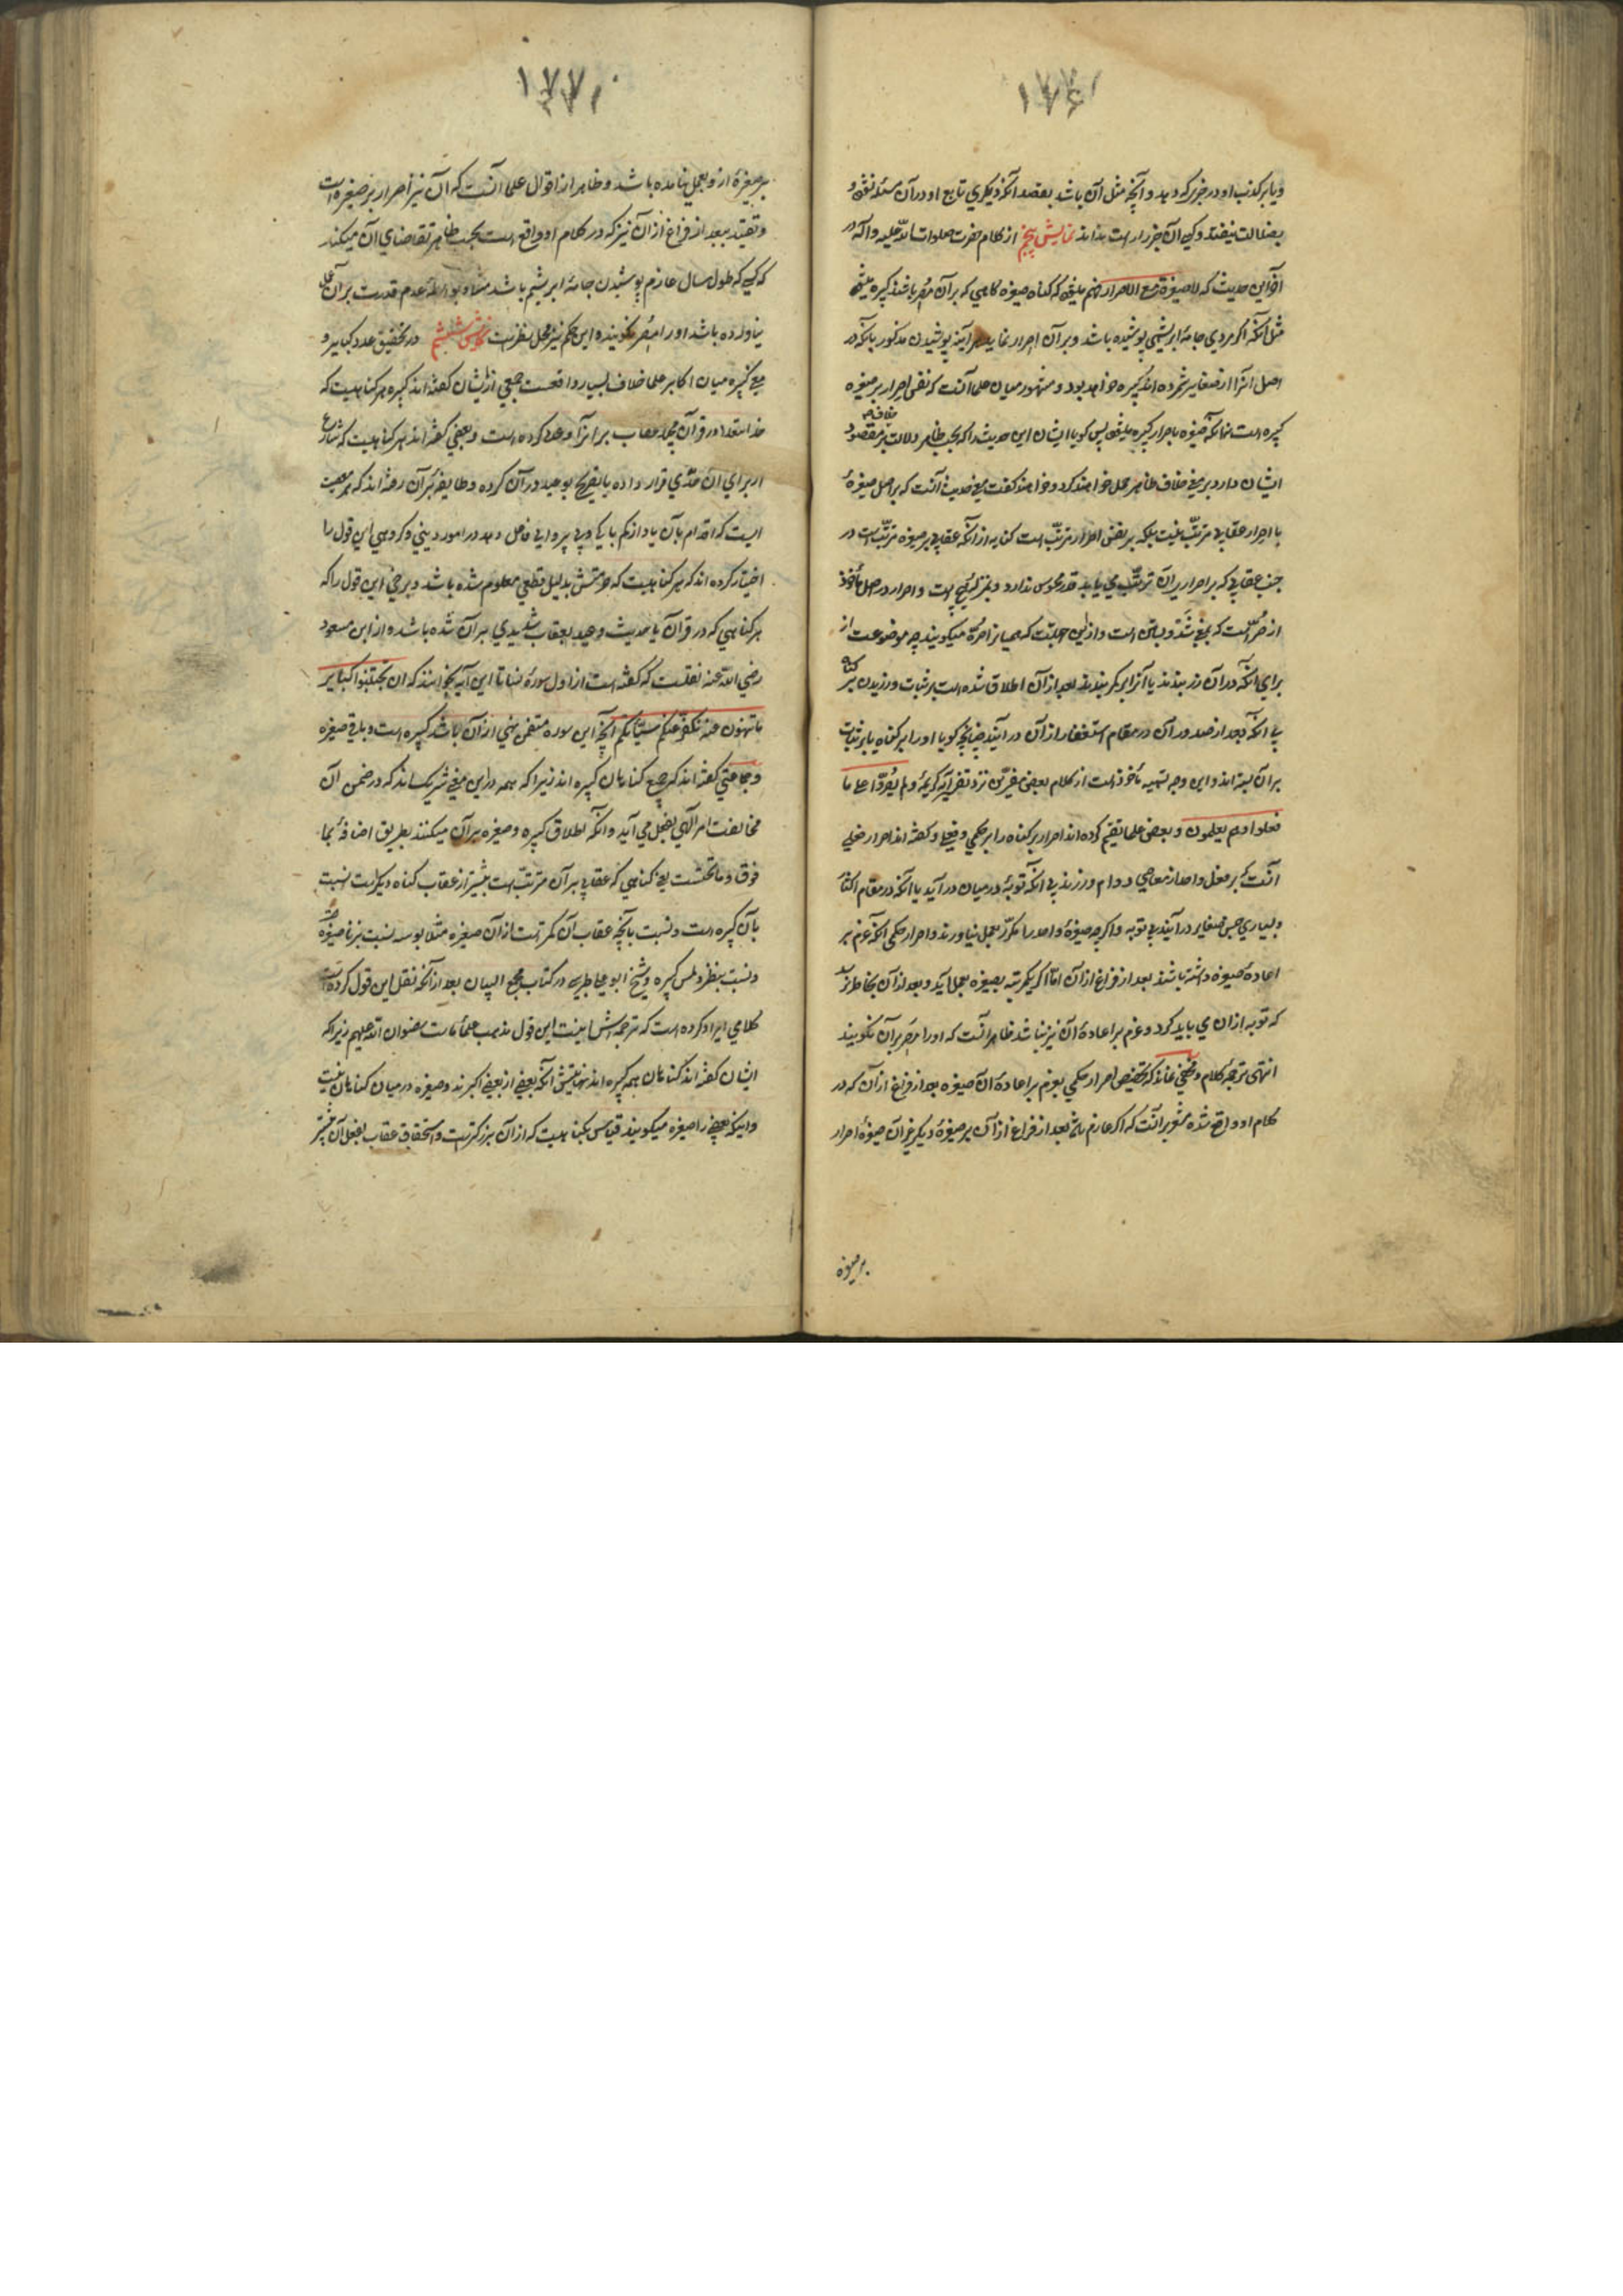 ۱۷۷۶
و یا بر کذب او در خبری که دهد و آنچه مثل آن باشد بقصد آنکه دیگری تابع او در آن مسئله نشود و
بضلالت نیفتد و کسی آن خبر دار است بداند نمایش پنجم از کلام حضرت صلوات الله علیه و آله در
آخر این حدیث که لا صغیرة مع الاصرار فهم میشود که گناه صغیره گاهی که بر آن مُصِر باشند کبیره میشود
مثل آنکه اگر مردی جامهٔ ابریشمی پوشیده باشد و بر آن اصرار نماید هر آینه پوشیدن مذکور با آنکه در
اصل آنرا از صغایر شمرده اند کبیره خواهد بود و مشهور میان علما آنست که نفس اصرار بر صغیره
کبیره است نه آنکه صغیره با صرار کبیره میشود پس گویا ایشان این حدیث را که بحسب ظاهر دلالت بر خلاف مقصود
ایشان دارد بر معنی خلاف ظاهر حمل خواهند کرد و خواهند گفت معنی حدیث آنست که بر اصل صغیرهٔ
با اصرار عقابی مرتّب نیست بلکه بر نفس اصرار مرتّب است کنایه از آنکه عقابی بر صغیره مرتّب است در
جنب عقابی که بر اصرار بر آن ترتّب می یابد قدر محسوس ندارد و بمنزلهٔ هیچ است و اصرار در اصل مأخوذ
از صُرّ است که بمعنی شَدّ و بستن است و از این جهتست که همیان زر را صُرّه میگویند چه موضوعست از
برای آنکه در آن زر بندند یا آنرا بر کمر بندند بعد از آن اطلاق شده است بر ثبات ورزیدن بر گناه
بی آنکه بعد از صدور آن در مقام استغفار از آن در آیند چنانچه گویا او را بر گناه یا بر ثبات
بر آن بسته اند و این وجه تسمیه مأخوذ است از کلام بعضی مفسّرین نزد تفسیر آیهٔ کریمهٔ و لم یُصِرّوا علی ما
فعلوا و هم یعلمون و بعضی علما تقسیم کرده اند اصرار بر گناه را بر حکمی و فعلی و گفته اند اصرار فعلی
آنست که بر فعل واحد از معاصی دوام ورزند بی آنکه توبهٔ در میان در آید یا آنکه در مقام اکثار
و بسیاری جنس صغایر در آیند بی توبه و اگر چه صغیرهٔ واحد را مکرّر بعمل نیاورند و اصرار حکمی آنکه عزم بر
اعادهٔ صغیره داشته باشند بعد از فراغ از آن امّا اگر یکمرتبه صغیره بعمل آید و بعد از آن بخاطر نرسد
که توبه از آن می باید کرد و عزم بر اعادهٔ آن نیز نباشد ظاهر آنست که او را مُصِر بر آن نگویند
انتهی ترجمهٔ کلام و مخفی نماند که تخصیص اصرار حکمی بعزم بر اعادهٔ آن صغیره بعد از فراغ از آن که در
کلام او واقع شده مشعر بر آنست که اگر عازم باشد بعد از فراغ از آن بر صغیرهٔ دیگر غیر آن صغیره اصرار
بر صغیره
۱۷۷۷
بر صغیرهٔ از و بعمل نیامده باشد و ظاهر از اقوال علما آنست که آن نیز اصرار بر صغیره است
و تقیید ببعد از فراغ از آن نیز که در کلام او واقع است بحسب ظاهر تقاضای آن میکند
که کسی که طول سال عازم پوشیدن جامهٔ ابریشم باشد مثلا و بواسطهٔ عدم قدرت بر آن بعمل
نیاورده باشد او را مُصِر نگویند و این حکم نیز محل نظر است نمایش ششم در تحقیق عدد کبایر و
معنی کبیره میان اکابر علما خلاف بسیار واقعست جمعی از ایشان گفته اند کبیره هر گناهیست که
خدایتعالی در قرآن مجید عقاب بر آنرا وعده کرده است و بعضی گفته اند هر گناهیست که شارع
از برای آن حدّی قرار داده یا تصریح بوعید در آن کرده و طایفهٔ بر آن رفته اند که هر معصیت
ایست که اقدام بآن یاد از کم باکی و بی پروایی فاعل دهد در امور دینی و گروهی این قول را
اختیار کرده اند که هر گناهیست که حرمتش بدلیل قطعی معلوم شده باشد و برخی این قول را که
هر گناهی که در قرآن یا حدیث وعید بعقاب شدیدی بر آن شده باشد و از ابن مسعود
رضی الله عنه نقلست که گفته است از اول سورهٔ نسا تا این آیه بخوانند که ان تجتنبوا کبایر
ما تنهون عنه نکفر عنکم سیّئاتکم آنچه این سوره متضمن نهی از آن باشد کبیره است و باقی صغیره
و جماعتی گفته اند که جمیع گناهان کبیره اند زیرا که همه در این معنی شریک اند که در ضمن آن
مخالفت امر الهی بفعل می آید و آنکه اطلاق کبیره و صغیره بر آن میکنند بطریق اضافه بما
فوق و ما تحتست یعنی گناهی که عقابی بر آن مترتب است بیشتر از عقاب گناه دیگر است نسبت
بآن کبیره است و نسبت بآنچه عقاب آن کمتر است از آن صغیره مثلا بوسه نسبت بزنا صغیره است
و نسبت بنظر و لمس کبیره و شیخ ابو علی طبرسی در کتاب مجمع البیان بعد از آنکه نقل این قول کرده است
کلامی ایراد کرده است که ترجمه اش اینست این قول مذهب علمأ ماست رضوان الله علیهم زیرا که
ایشان گفته اند گناهان همه کبیره اند نهایتش آنکه بعضی از بعضی اکبرند و صغیره در میان گناهان نیست
و اینکه بعضی را صغیره میگویند قیاس بگناهیست که از آن بزرگتر است و استحقاق عقاب بفعل آن بیشتر